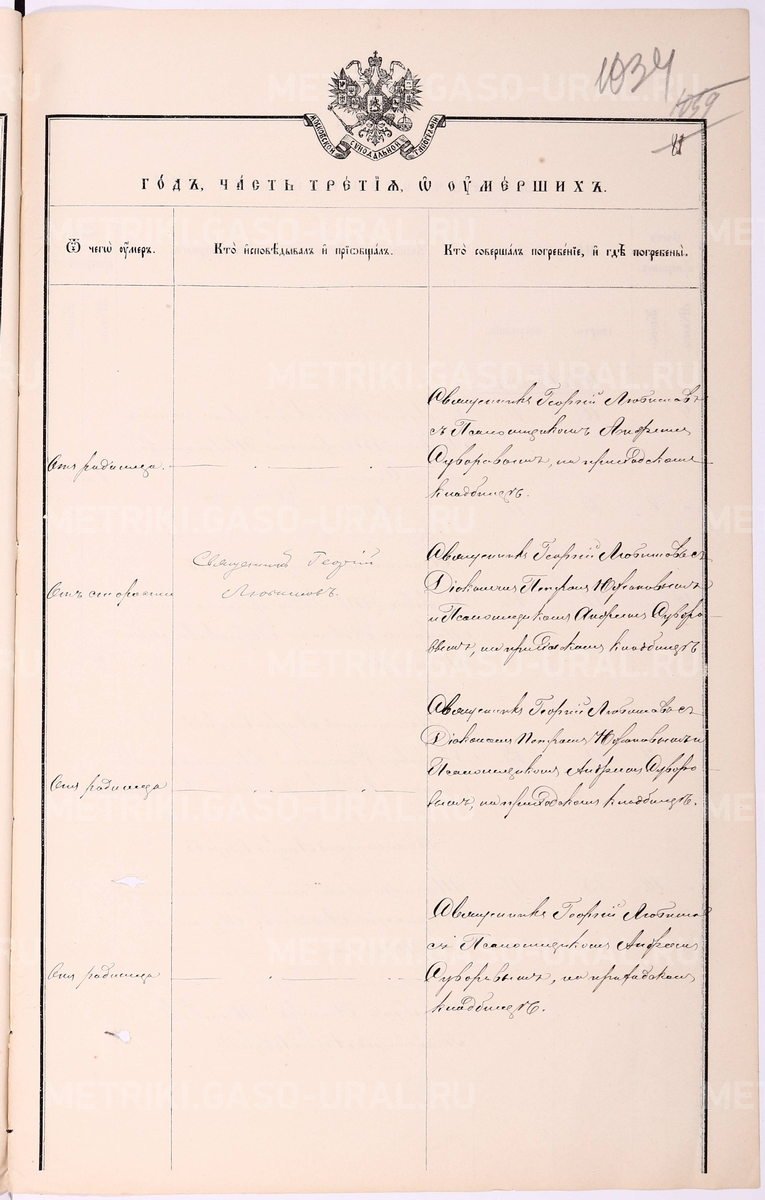 1034
1039
МОСКОВСКОЙ СѴНОДАЛЬНОЙ ТИПОГРАФІИ
ГО́ДЪ, ЧА́СТЬ ТРЕ́ТІѦ, Ѡ҆ ОУ҆МЕ́РШИХЪ.
Ѿ чегѡ̀ оу҆́меръ.
Кто̀ и҆сповѣ́дывалъ и҆ прїѡбща́лъ.
Кто̀ соверша́лъ погребе́нїе, и҆ гдѣ̀ погребены̀.
Священникъ Георгій Любимовъ
съ Псаломщикомъ Андреемъ
Отъ родимца.
Суворовымъ, на приходскомъ
кладбищѣ.
Отъ старости
Священникъ Георгій
Любимовъ.
Священникъ Георгій Любимовъ съ
Діакономъ Петромъ
и Псаломщикомъ Андреемъ Суворо
вымъ, на приходскомъ кладбищѣ
Отъ родимца
Священникъ Георгій Любимовъ съ
Діакономъ Петромъ
Псаломщикомъ Андреемъ Суворо
вымъ, на приходскомъ кладбищѣ.
Отъ родимца
Священникъ Георгій Любимовъ
съ Псаломщикомъ Андреемъ
Суворовымъ, на приходскомъ
кладбищѣ.
METRIKI.GASO-URAL.RU